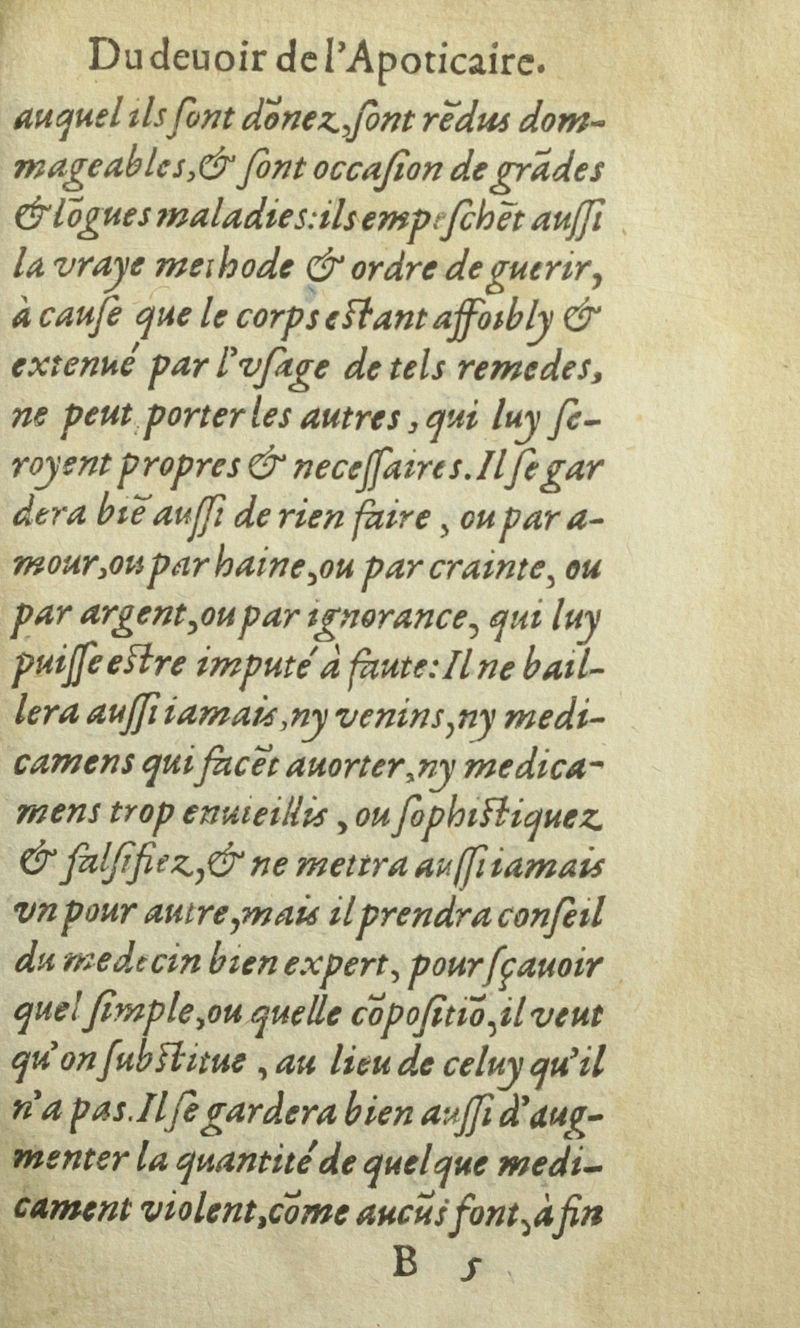 Du deuoir de l'Apoticaire.
auquel ils ſont dōnez, ſont rēdus dom-
mageables, & ſont occaſion de grādes
& lōgues maladies: ils empeſchēt auſſi
la vraye methode & ordre de guerir,
à cauſe que le corps eſtant affoibly &
extenué par l'vſage de tels remedes,
ne peut porter les autres, qui luy ſe-
royent propres & neceſſaires. Il ſe gar
dera biē auſſi de rien faire, ou par a-
mour, ou par haine, ou par crainte, ou
par argent, ou par ignorance, qui luy
puiſſe eſtre imputé à faute: Il ne bail-
lera auſſi iamais, ny venins, ny medi-
camens qui facēt auorter, ny medica-
mens trop enuieillis, ou ſophiſtiquez
& falſifiez, & ne mettra auſſi iamais
vn pour autre, mais il prendra conſeil
du medecin bien expert, pour ſçauoir
quel ſimple, ou quelle cōpoſitiō, il veut
qu'on ſubſtitue, au lieu de celuy qu'il
n'a pas. Il ſe gardera bien auſſi d'aug-
menter la quantité de quelque medi-
cament violent, cōme aucūs font, à fin
B 5